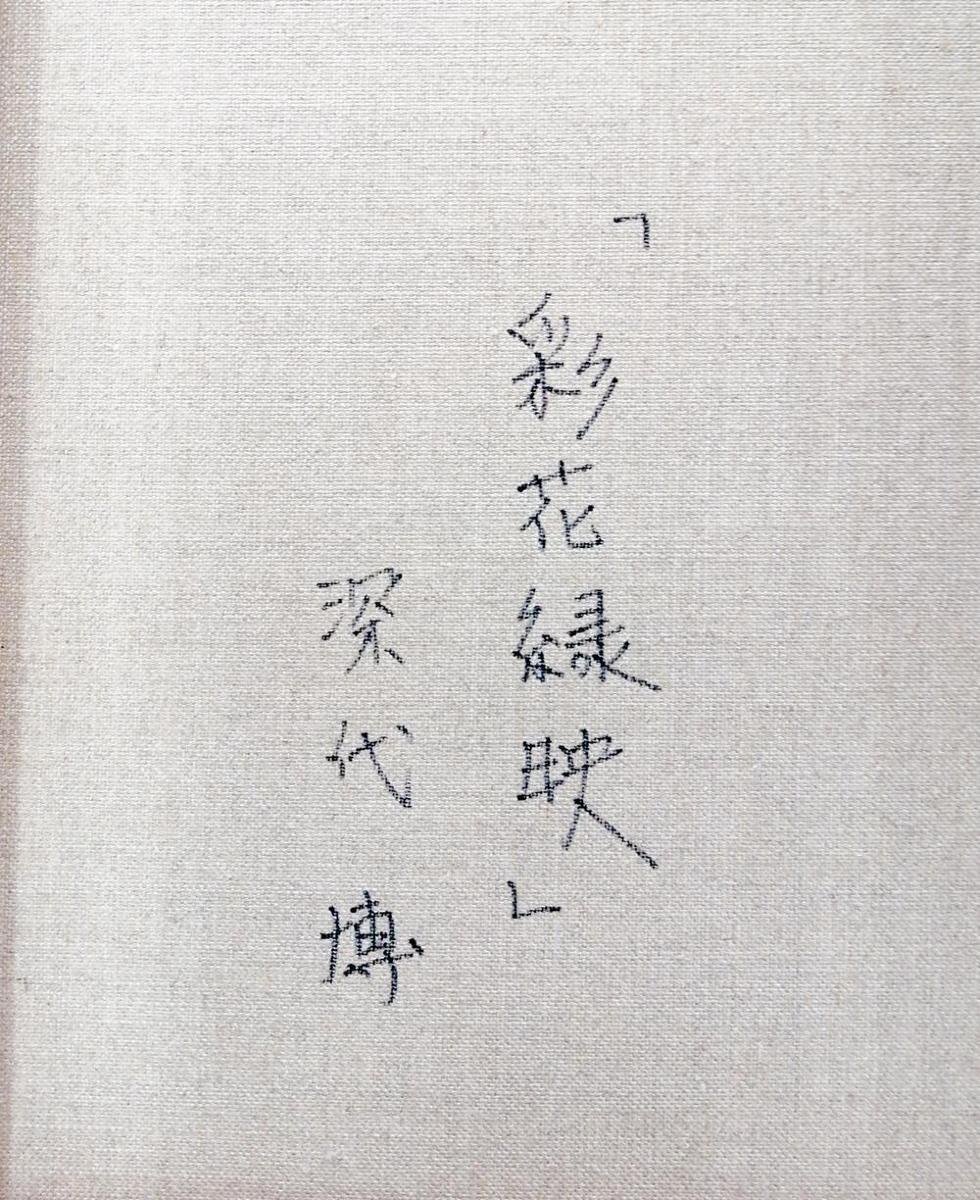 「彩花緑映」
深代博